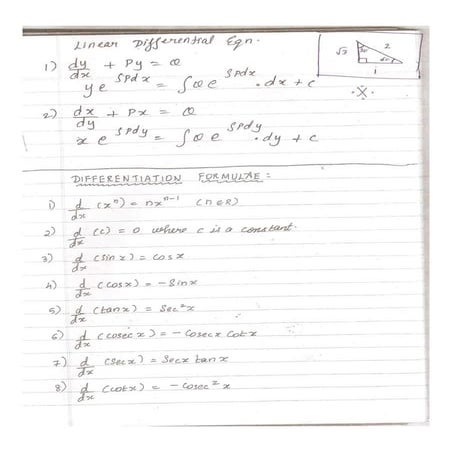 Linear Differential Eqn.
1) dy/dx + Py = Q
y e^∫Pdx = ∫Q e^∫Pdx . dx + c
2) dx/dy + Px = Q
x e^∫Pdy = ∫Q e^∫Pdy . dy + c
√3 2
1
DIFFERENTIATION FORMULAE :
1) d/dx (x^n) = nx^n-1 (n∈R)
2) d/dx (c) = 0 where c is a constant.
3) d/dx (sin x) = cos x
4) d/dx (cos x) = - Sin x
5) d/dx (tan x) = Sec²x
6) d/dx (cosec x) = - Cosec x Cot x
7) d/dx (Sec x) = Sec x tan x
8) d/dx (cot x) = - Cosec² x